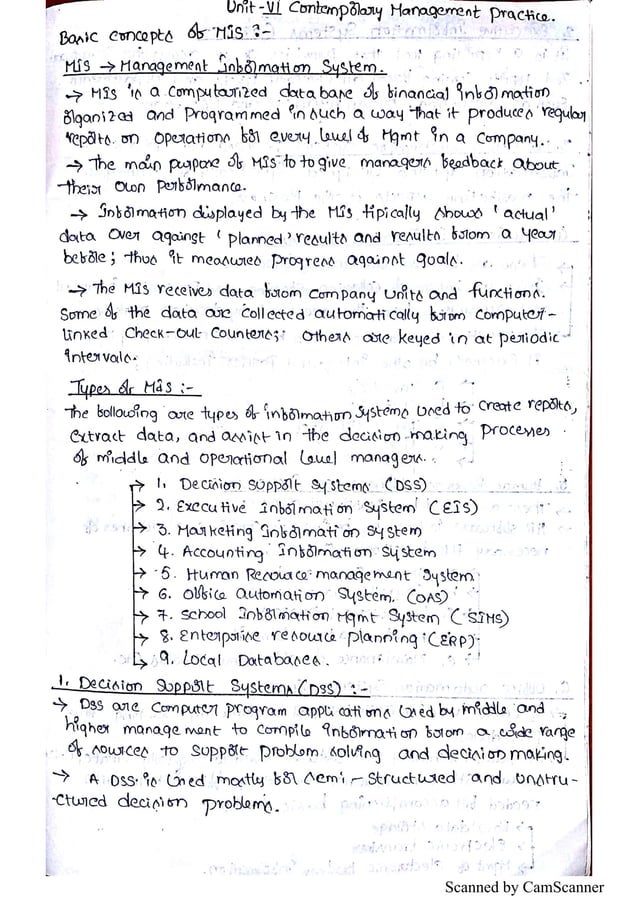 Unit-VI Contemporary Management Practice.
Basic concepts of MIS :-
MIS → Management Information System.
→ MIS is a computarized database of financial information
organized and Programmed in such a way that it produces regular
reports on operations for every level of Mgmt in a company.
→ The main purpose of MIS to to give managers feedback about
their own performance.
→ Information displayed by the MIS tipically shows 'actual'
data over against 'planned' results and results from a year
before; thus it measures progress against goals.
→ The MIS receives data from company units and functions.
Some of the data are collected automatically from computer-
linked check-out counters; others are keyed in at periodic
intervals.
Types of MIS :-
The following are types of information systems used to create reports,
extract data, and assist in the decision making processes
of middle and operational level managers.
→ 1. Decision support systems (DSS)
→ 2. Executive information system (EIS)
→ 3. Marketing Information System
→ 4. Accounting Information System
→ 5. Human Resource management system
→ 6. Office automation system (OAS)
→ 7. School Information Mgmt System (SIMS)
→ 8. Enterprise resource planning (ERP)
→ 9. Local Databases.
1. Decision Support Systems (DSS) :-
→ DSS are computer program applications used by middle and
higher management to compile information from a wide range
of sources to support problem solving and decision making.
→ A DSS is used mostly for semi-structured and unstru-
-ctured decision problems.
Scanned by CamScanner